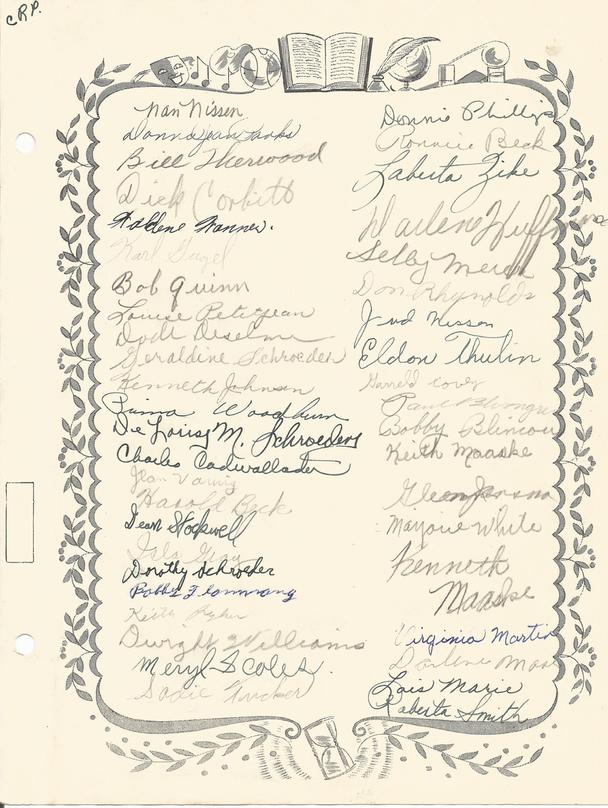 CRP.
Nan Nissen
Donna Jean
Bill Sherwood
Dick Corbitt
Wanner.
Karl
Bob Quinn
Louise Petitjean
Dode Deselms
Geraldine Schroeder
Kenneth Johnson
Prima Woodburn
De Louise M. Schroeder
Charles Cadwallader
Jean
Harold Beck
Dean Stockwell
Dorothy Schroeder
Bobby
Keith
Dwight Williams
Meryl Scoles.
Sadie Tucker
Donnie Phillips
Ronnie Beck
Laberta Zike
Darlene Huffman
Selby
Don Rhynolds
Jud Nissen
Eldon Thulin
Garreld Covey
Paul
Bobby Blincow
Keith Maaske
Marjorie White
Kenneth
Maaske
Virginia Martin
Darlene
Lois Marie
Roberta Smith